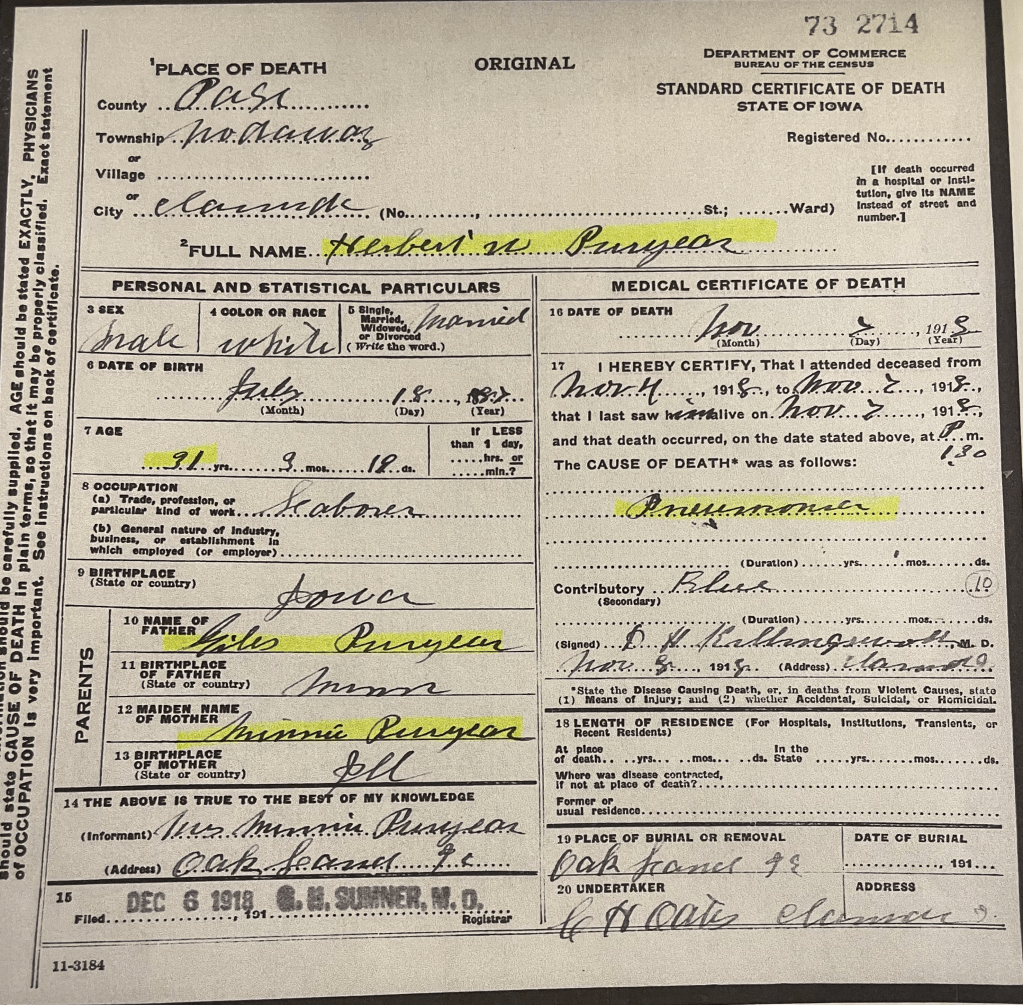 73 2714
DEPARTMENT OF COMMERCE
BUREAU OF THE CENSUS
STANDARD CERTIFICATE OF DEATH
STATE OF IOWA
ORIGINAL
Registered No.
[If death occurred in a hospital or insti-
tution, give its NAME
instead of street and
number.]
1 PLACE OF DEATH
County Page
Township Nodaway
or
Village
or
City Clarinda (No. , St.; Ward)
2 FULL NAME Herbert N Puryear
PERSONAL AND STATISTICAL PARTICULARS
3 SEX
Male
4 COLOR OR RACE
White
5 Single,
Married,
Widowed,
or Divorced
(Write the word.)
Married
6 DATE OF BIRTH
July 18
(Month) (Day) (Year)
7 AGE
31 yrs. 3 mos. 18 ds.
If LESS
than 1 day,
hrs. or
min.?
8 OCCUPATION
(a) Trade, profession, or
particular kind of work Laborer
(b) General nature of Industry,
business, or establishment in
which employed (or employer)
9 BIRTHPLACE
(State or country)
Iowa
PARENTS
10 NAME OF
FATHER Giles Puryear
11 BIRTHPLACE
OF FATHER
(State or country)
12 MAIDEN NAME
OF MOTHER Minnie Puryear
13 BIRTHPLACE
OF MOTHER
(State or country) Ill
14 THE ABOVE IS TRUE TO THE BEST OF MY KNOWLEDGE
(Informant) Mrs Minnie Puryear
(Address) Oak Land
15
Filed DEC 6 1918, 191 G. H. SUMNER, M. D.
Registrar
11-3184
MEDICAL CERTIFICATE OF DEATH
16 DATE OF DEATH
Nov 7, 1918
(Month) (Day) (Year)
17 I HEREBY CERTIFY, That I attended deceased from
Nov 4, 1918, to Nov 7 1918,
that I last saw him alive on Nov 7, 1918,
and that death occurred, on the date stated above, at P m.
1.30
The CAUSE OF DEATH* was as follows:
Pneumonia
(Duration) yrs. mos. ds.
Contributory 10
(Secondary)
(Duration) yrs. mos. ds.
(Signed) M. D.
Nov 8 1918 (Address) Clarinda
*State the Disease Causing Death, or, in deaths from Violent Causes, state
(1) Means of Injury; and (2) whether Accidental, Suicidal, or Homicidal.
18 LENGTH OF RESIDENCE (For Hospitals, Institutions, Transients, or
Recent Residents)
At place
of death yrs. mos. ds. In the
State yrs. mos. ds.
Where was disease contracted,
if not at place of death?
Former or
usual residence
19 PLACE OF BURIAL OR REMOVAL
Oak Land
DATE OF BURIAL
, 191
20 UNDERTAKER
C H Oates
ADDRESS
Clarinda
should be carefully supplied. AGE should be stated EXACTLY. PHYSICIANS
should state CAUSE OF DEATH in plain terms, so that it may be properly classified. Exact statement
of OCCUPATION is very important. See instructions on back of certificate.